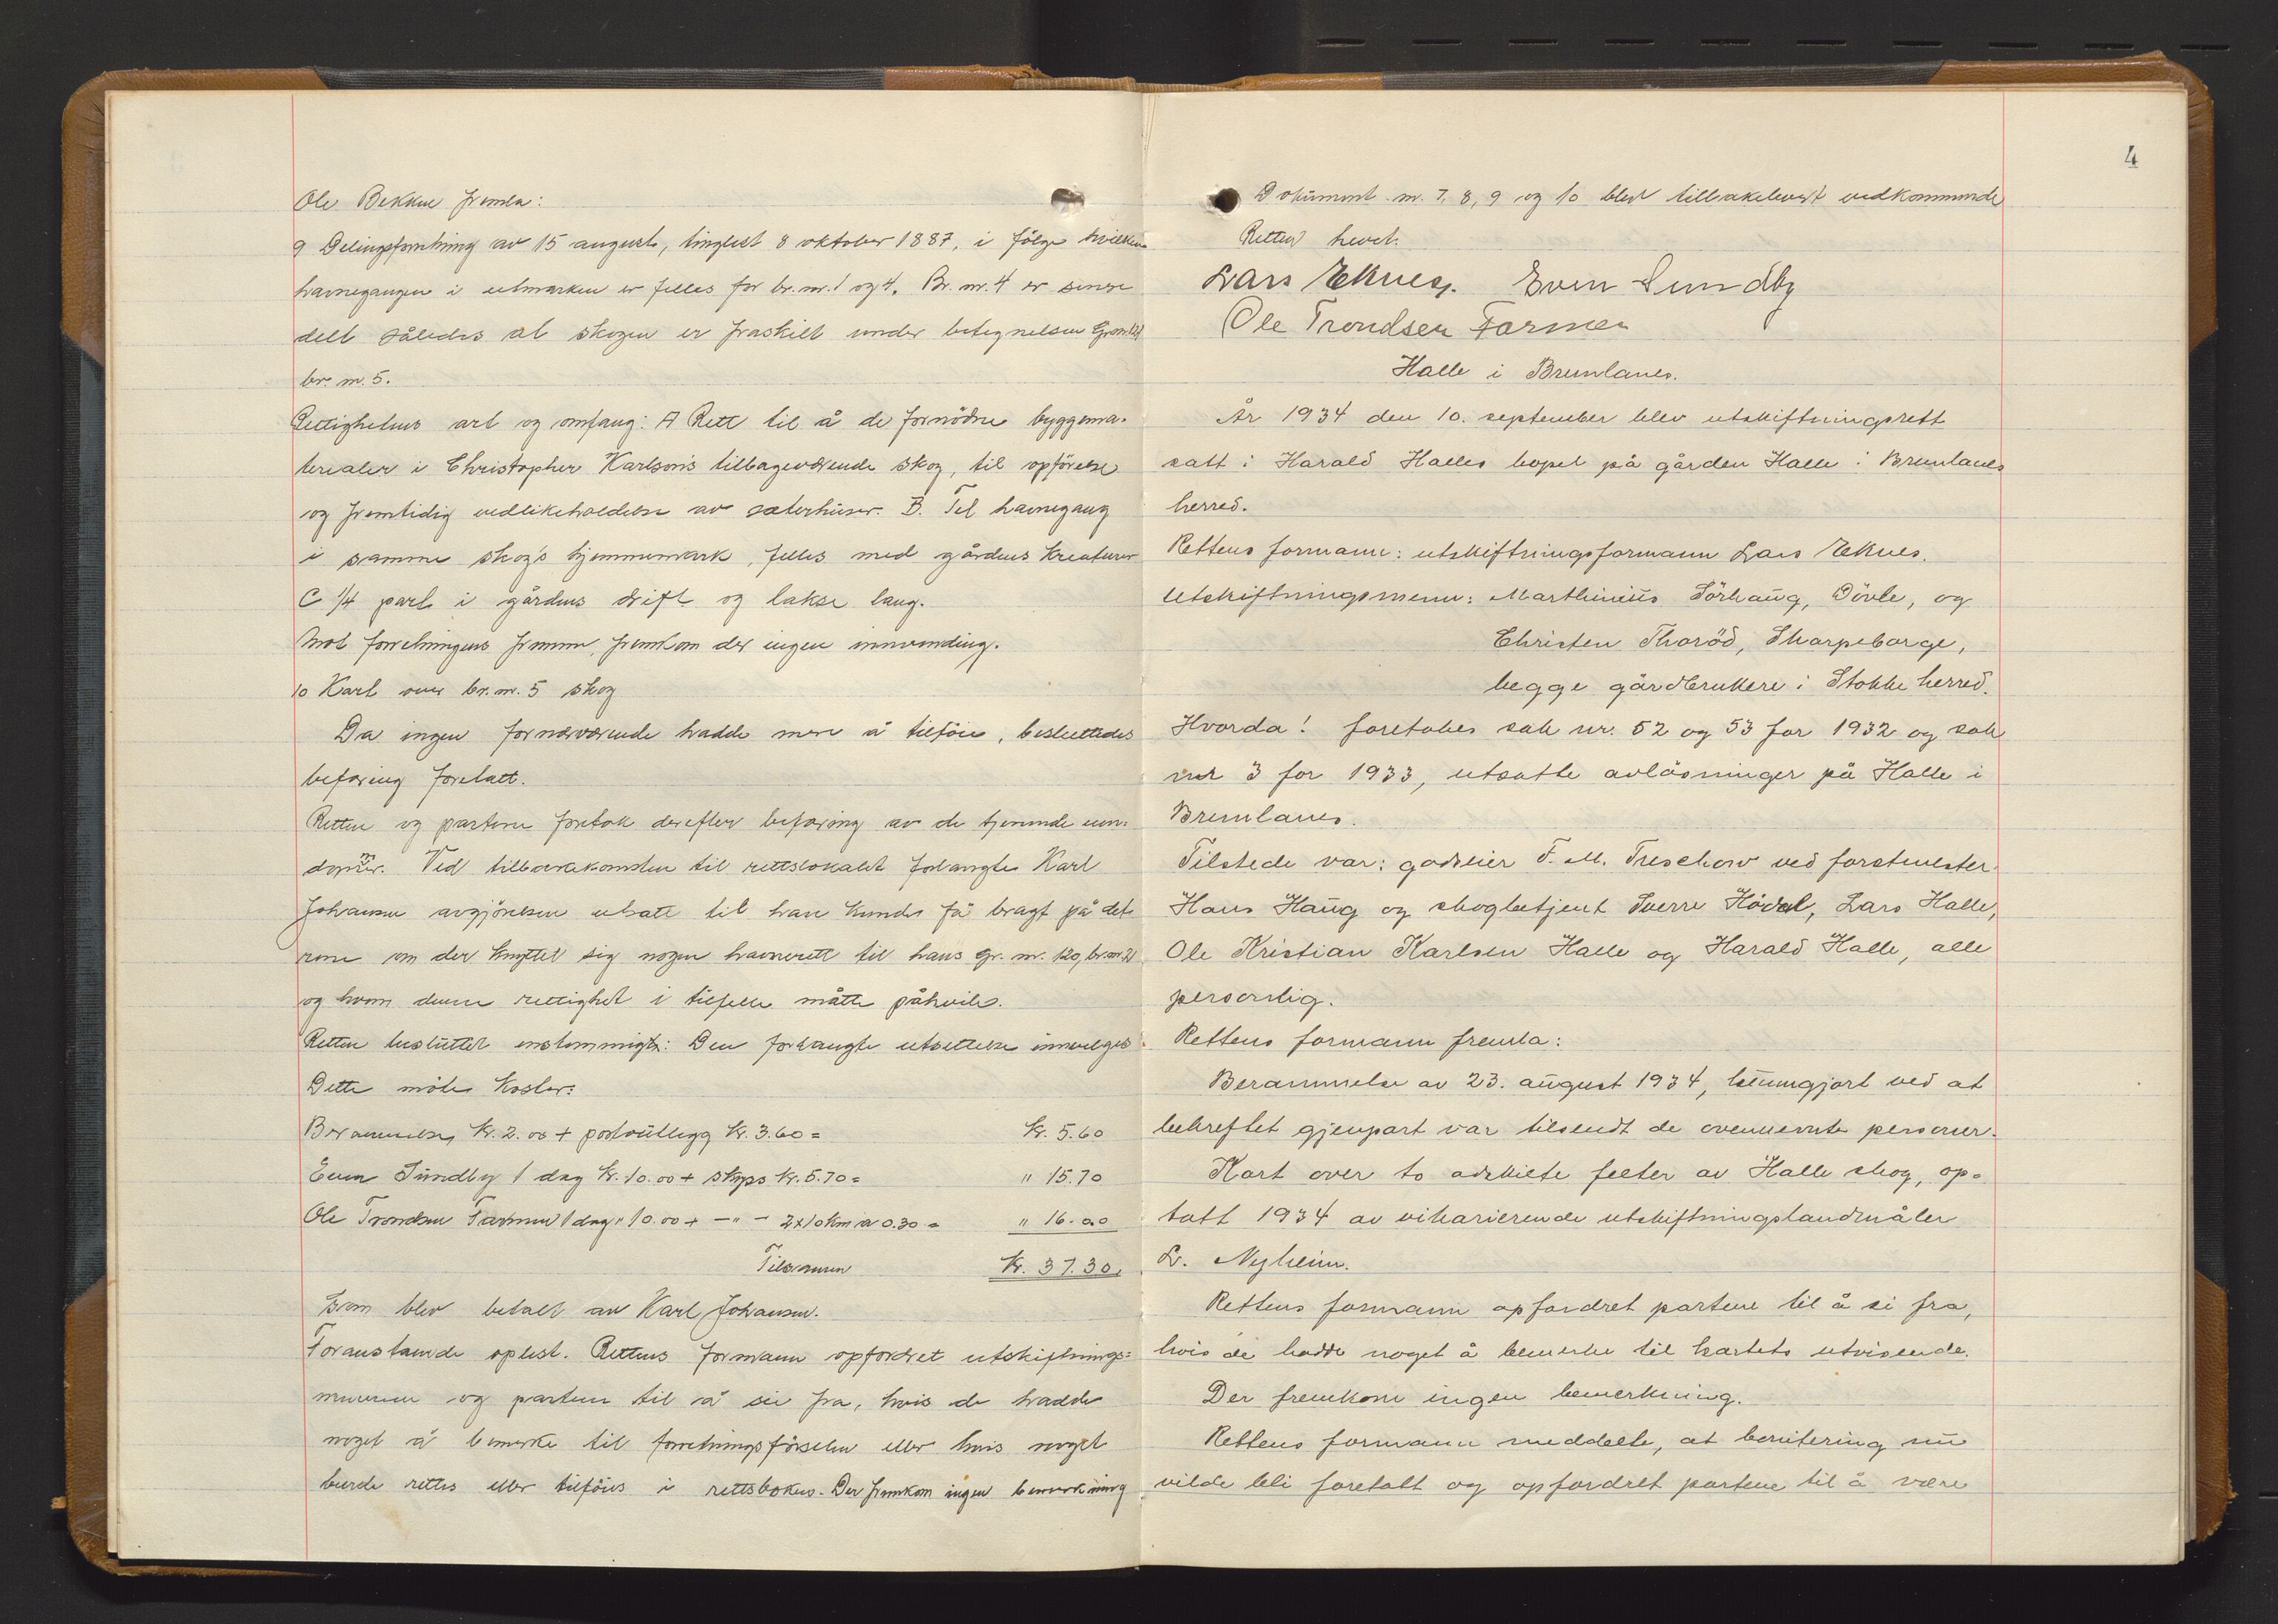 Ole Bekkene fremla:
9 Delingsforretning av 15 august, tinglest 8 oktober 1887, i følge hvilken
havnegangen i utmarken er felles for br. nr. 1 og 4. Br. nr. 4 er senere
delt således at skogen er fraskilt under betegnelsen
br. nr. 5.
Rettighetens art og omfang: A Rett til å de fornödne byggema-
terialer i Christopher Karlson's tilbageværende skog, til opförelse
og fremtidig vedlikeholdelse av sæterhuser. B. Til havnegang
i samme skog's hjemmemark, felles med gårdens kreaturer
C 1/4 part i gårdens drift og lakse laug.
Mot forretningens fremme, fremkom der ingen innvending.
10 Kart over br. nr. 5 skog
Da ingen fornærværende hadde mere å tilföie, besluttedes
befaring foretatt.
Retten og partene foretok derefter befaring av de tjenende eien-
dommer. Ved tilbakekomsten til rettslokalet forlangte Karl
Johansen avgjörelsen utsatt til han kunde få bragt på det
rene om der knyttet sig nogen havnerett til hans gr. nr. 120, br. nr. 2
og hvem denne rettighet i tilfelle måtte påhvile.
Retten besluttet enstemmigt: Den forlangte utsettelse innvilges
Dette möte koster:
Berammelse kr. 2.00 + postutlegg kr. 3.60 = kr. 5.60
Even Sundby 1 dag kr. 10.00 + skyss kr. 5.70 = " 15.70
Ole Trondsen Farmen 1 dag " 10.00 + - " - 2x10 km a 0.30 = " 16.00
Tilsammen kr. 37.30.
som blev betalt av Karl Johansen.
Foranstående oplest. Rettens formann opfordret utskiftnings-
mennene og partene til å si fra, hvis de hadde
noget å bemerke til forretningsförselen eller hvis noget
burde rettes eller tilföies i rettsboken. Der fremkom ingen bemerkning
4
Dokument nr. 7, 8, 9 og 10 blev tilbakelevert vedkommende
Retten hevet.
Lars Eknes. Even Sundby
Ole Trondsen Farmen
Halle i Brunlanes.
År 1934 den 10. september blev utskiftningsrett
satt i Harald Halles bopel på gården Halle i Brunlanes
herred.
Rettens formann: utskiftningsformann Lars Eknes.
Utskiftningsmenn: Marthinius Sörhaug, Dövle, og
Christen Thoröd, Skarpeborge,
begge gårdbrukere i Stokke herred.
Hvorda! foretokes sak nr. 52 og 53 for 1932 og sak
nr 3 for 1933, utsatte avlösninger på Halle i
Brunlanes.
Tilstede var: godseier F. M. Treschow ved forstmester
Hans Haug og skogbetjent Sverre Hödal, Lars Halle,
Ole Kristian Karlsen Halle og Harald Halle, alle
personlig.
Rettens formann fremla:
Berammelse av 23. august 1934, kunngjort ved at
bekreftet gjenpart var tilsendt de ovennevnte personer.
Kart over to adskilte felter av Halle skog, op-
tatt 1934 av vikarierende utskiftningslandmåler
L. Nyheim.
Rettens formann opfordret partene til å si fra,
hvis de hadde noget å bemerke til kartets utvisende.
Der fremkom ingen bemerkning.
Rettens formann meddelte, at bonitering nu
vilde bli foretatt og opfordret partene til å være